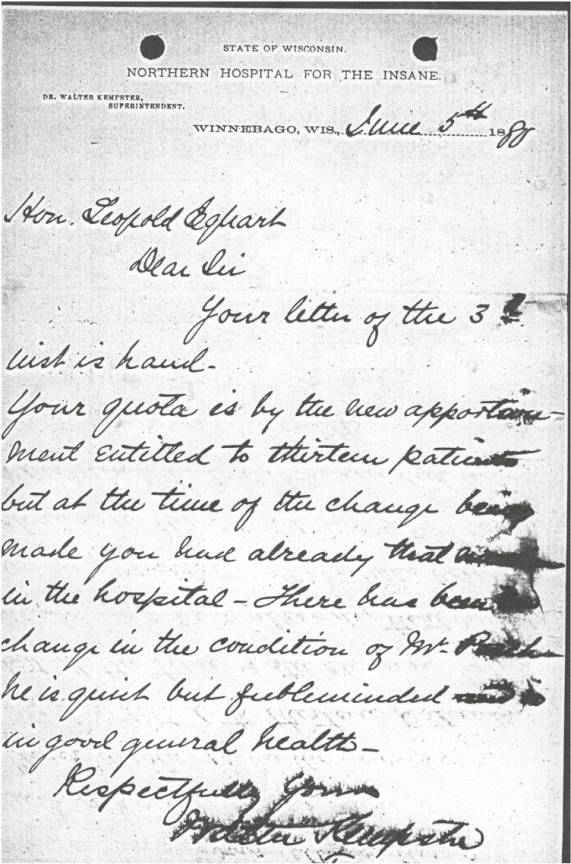 STATE OF WISCONSIN.
NORTHERN HOSPITAL FOR THE INSANE.
DR. WALTER KEMPSTER,
SUPERINTENDENT.
WINNEBAGO, WIS., June 5th 1880
Hon. Leopold Eghart
Dear Sir
Your letter of the 3d
inst is hand-
Your quota is by the new apportion-
ment entitled to thirteen patients
but at the time of the change being
made you had already that
in the hospital - There has been
change in the condition of Mr.
he is quiet but feebleminded
in good general health -
Respectfully Yours
Walter Kempster